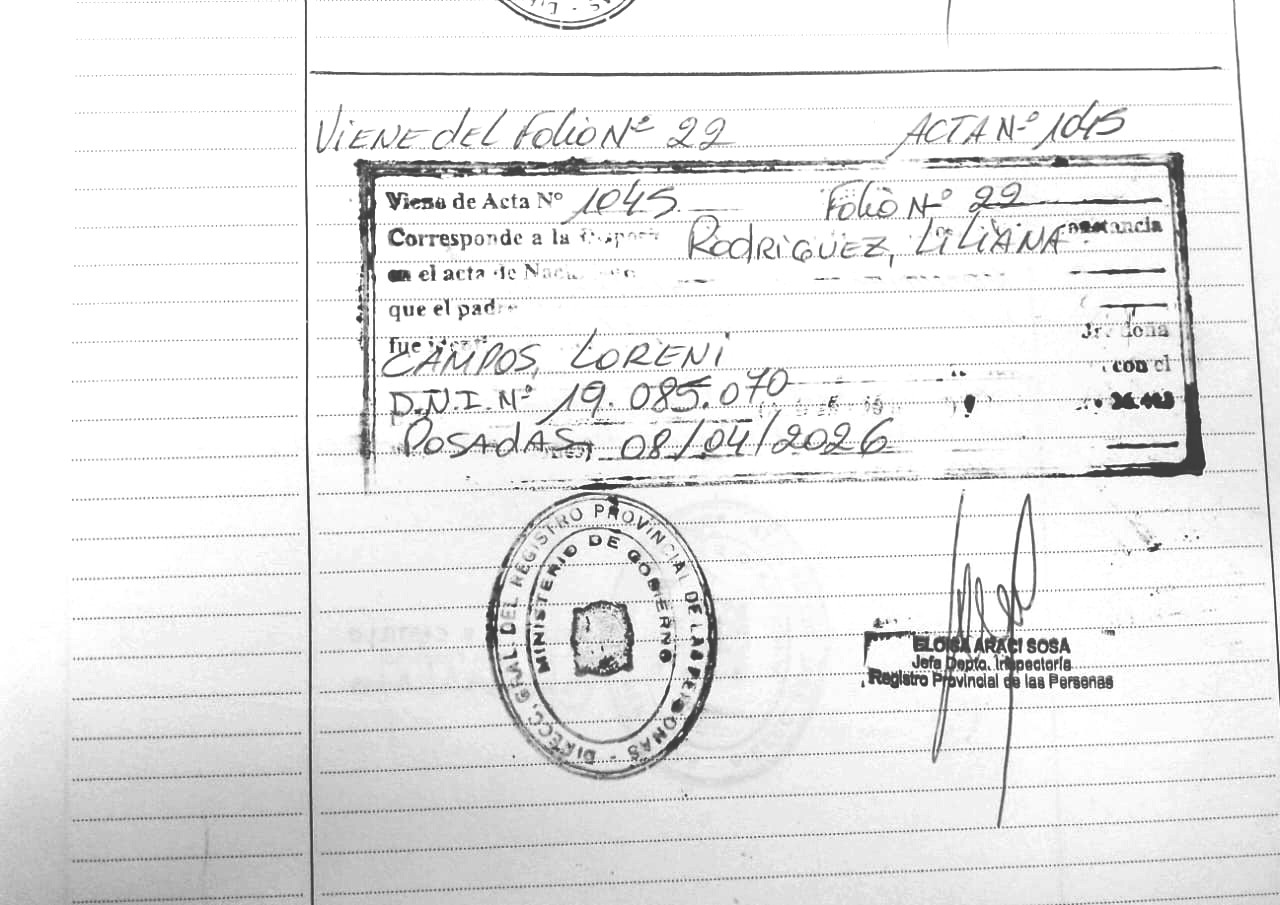 VIENE DEL FOLIO Nº 22 ACTA Nº 1045
Viene de Acta Nº 1045. FOLIO Nº 22
Corresponde a la RODRIGUEZ, LILIANA
en el acta de
que el padre
fue
CAMPOS, LORENI con el
D.N.I. Nº 19.085.070
POSADAS, 08/04/2026
DIRECC. GRAL. DEL REGISTRO PROVINCIAL DE LAS PERSONAS
MINISTERIO DE GOBIERNO
ELOISA ARACI SOSA
Jefa Depto. Inspectoría
Registro Provincial de las Personas